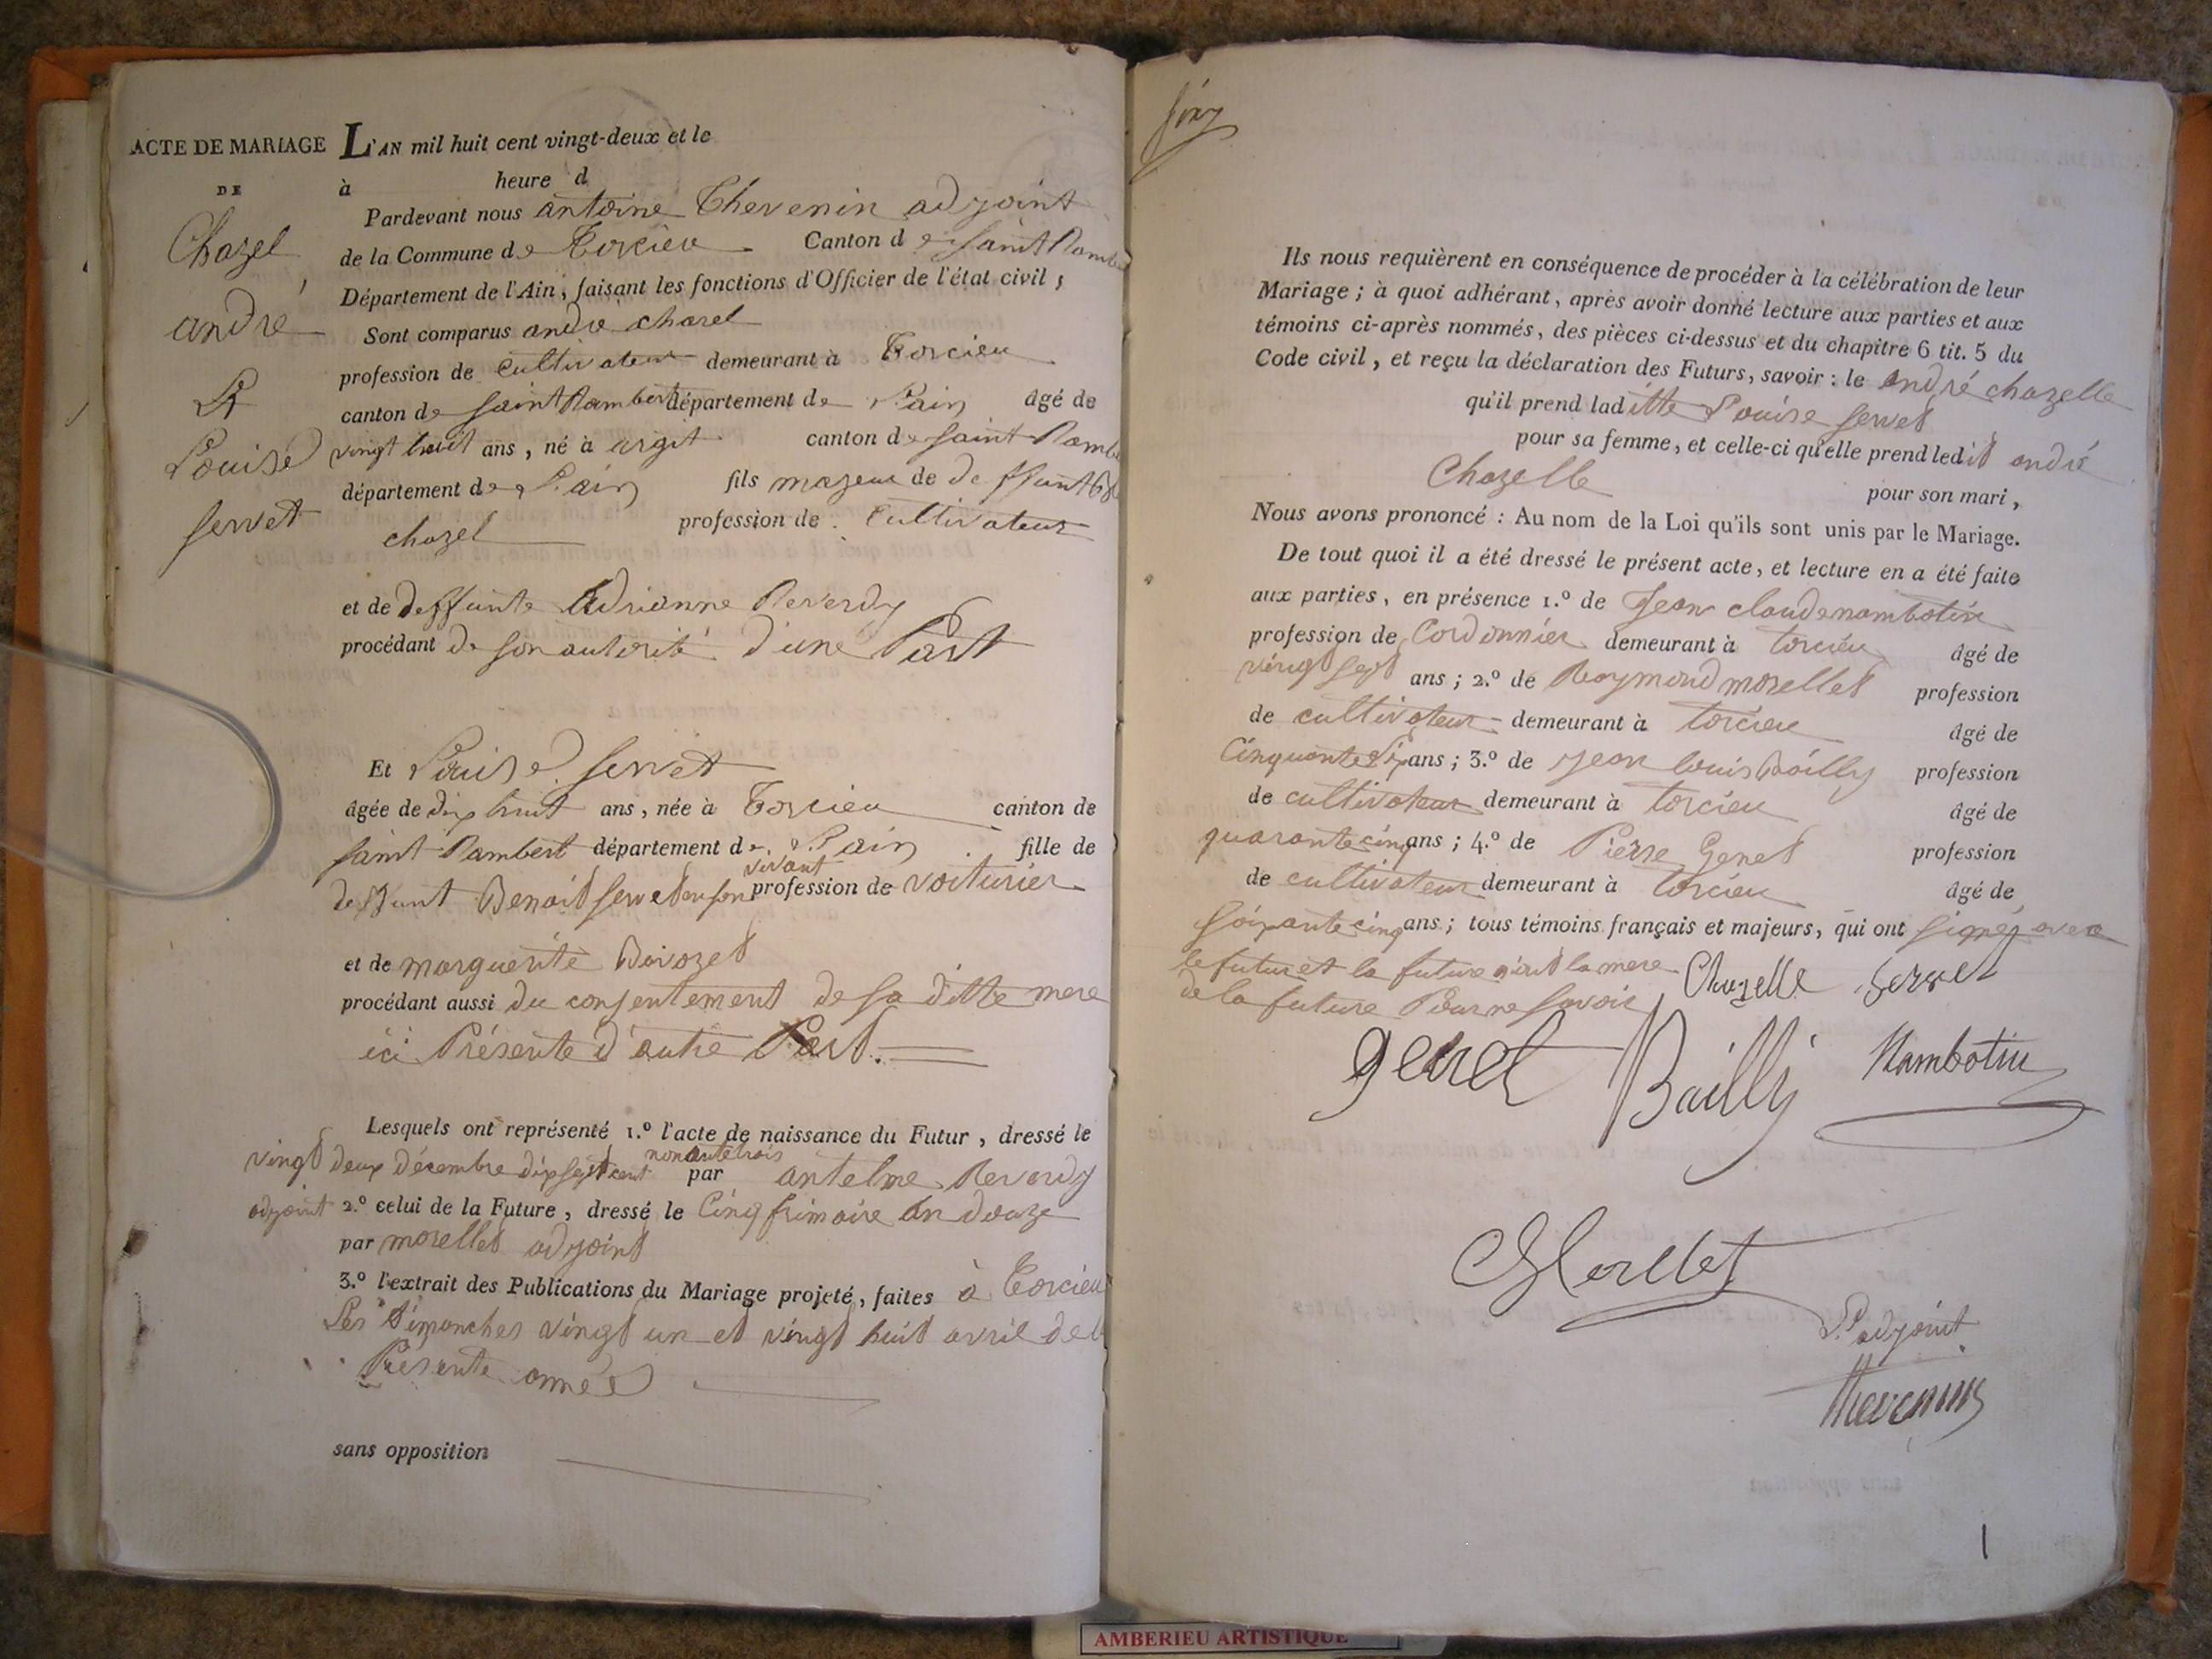 ACTE DE MARIAGE
DE
Chazel
andré
Et
Louise
servet
L'AN mil huit cent vingt-deux et le
à heure d
Pardevant nous antoine Thevenin adjoint
de la Commune de Torcieu Canton de saint Ramb
Département de l'Ain, faisant les fonctions d'Officier de l'état civil;
Sont comparus andré chazel
profession de Cultivateur demeurant à Torcieu
canton de saint Rambert département de L'ain âgé de
vingt huit ans, né à argit canton de saint Ramb
département de L'ain fils majeur de deffunt
chazel profession de Cultivateur
et de deffunte Adrianne Reverdy
procédant de son autorité d'une Part
Et Louise servet
âgée de dix huit ans, née à Torcieu canton de
saint Rambert département de L'ain fille de
vivant
deffunt Benoit servet en son profession de voiturier
et de marguerite
procédant aussi du consentement de sa ditte mere
ici Présente d'autre Part.
Lesquels ont représenté 1.º l'acte de naissance du Futur, dressé le
nonante trois
vingt deux décembre dix sept cent par antelme Reverdy
adjoint 2.º celui de la Future, dressé le Cinq frimaire an douze
par morellet adjoint
3.º l'extrait des Publications du Mariage projeté, faites à Torcieu
Les dimanches vingt un et vingt huit avril de
Présente année
sans opposition
Ils nous requièrent en conséquence de procéder à la célébration de leur
Mariage; à quoi adhérant, après avoir donné lecture aux parties et aux
témoins ci-après nommés, des pièces ci-dessus et du chapitre 6 tit. 5 du
Code civil, et reçu la déclaration des Futurs, savoir: le andré chazelle
qu'il prend laditte Louise servet
pour sa femme, et celle-ci qu'elle prend ledit andré
Chazelle pour son mari,
Nous avons prononcé: Au nom de la Loi qu'ils sont unis par le Mariage.
De tout quoi il a été dressé le présent acte, et lecture en a été faite
aux parties, en présence 1.º de Jean claude nambotin
profession de Cordonnier demeurant à torcieu âgé de
vingt sept ans; 2.º de Raymond morellet profession
de cultivateur demeurant à torcieu âgé de
Cinquante Six ans; 3.º de jean louis Bailly profession
de cultivateur demeurant à torcieu âgé de
quarante cinq ans; 4.º de Pierre Genet profession
de cultivateur demeurant à torcieu âgé de
soixante cinq ans; tous témoins français et majeurs, qui ont signés avec
le futur et la future la mere Chazelle servet
de la future Pour ne savoir
genet Bailly Nambotin
Morellet
L'adjoint
thevenin
AMBERIEU ARTISTIQUE